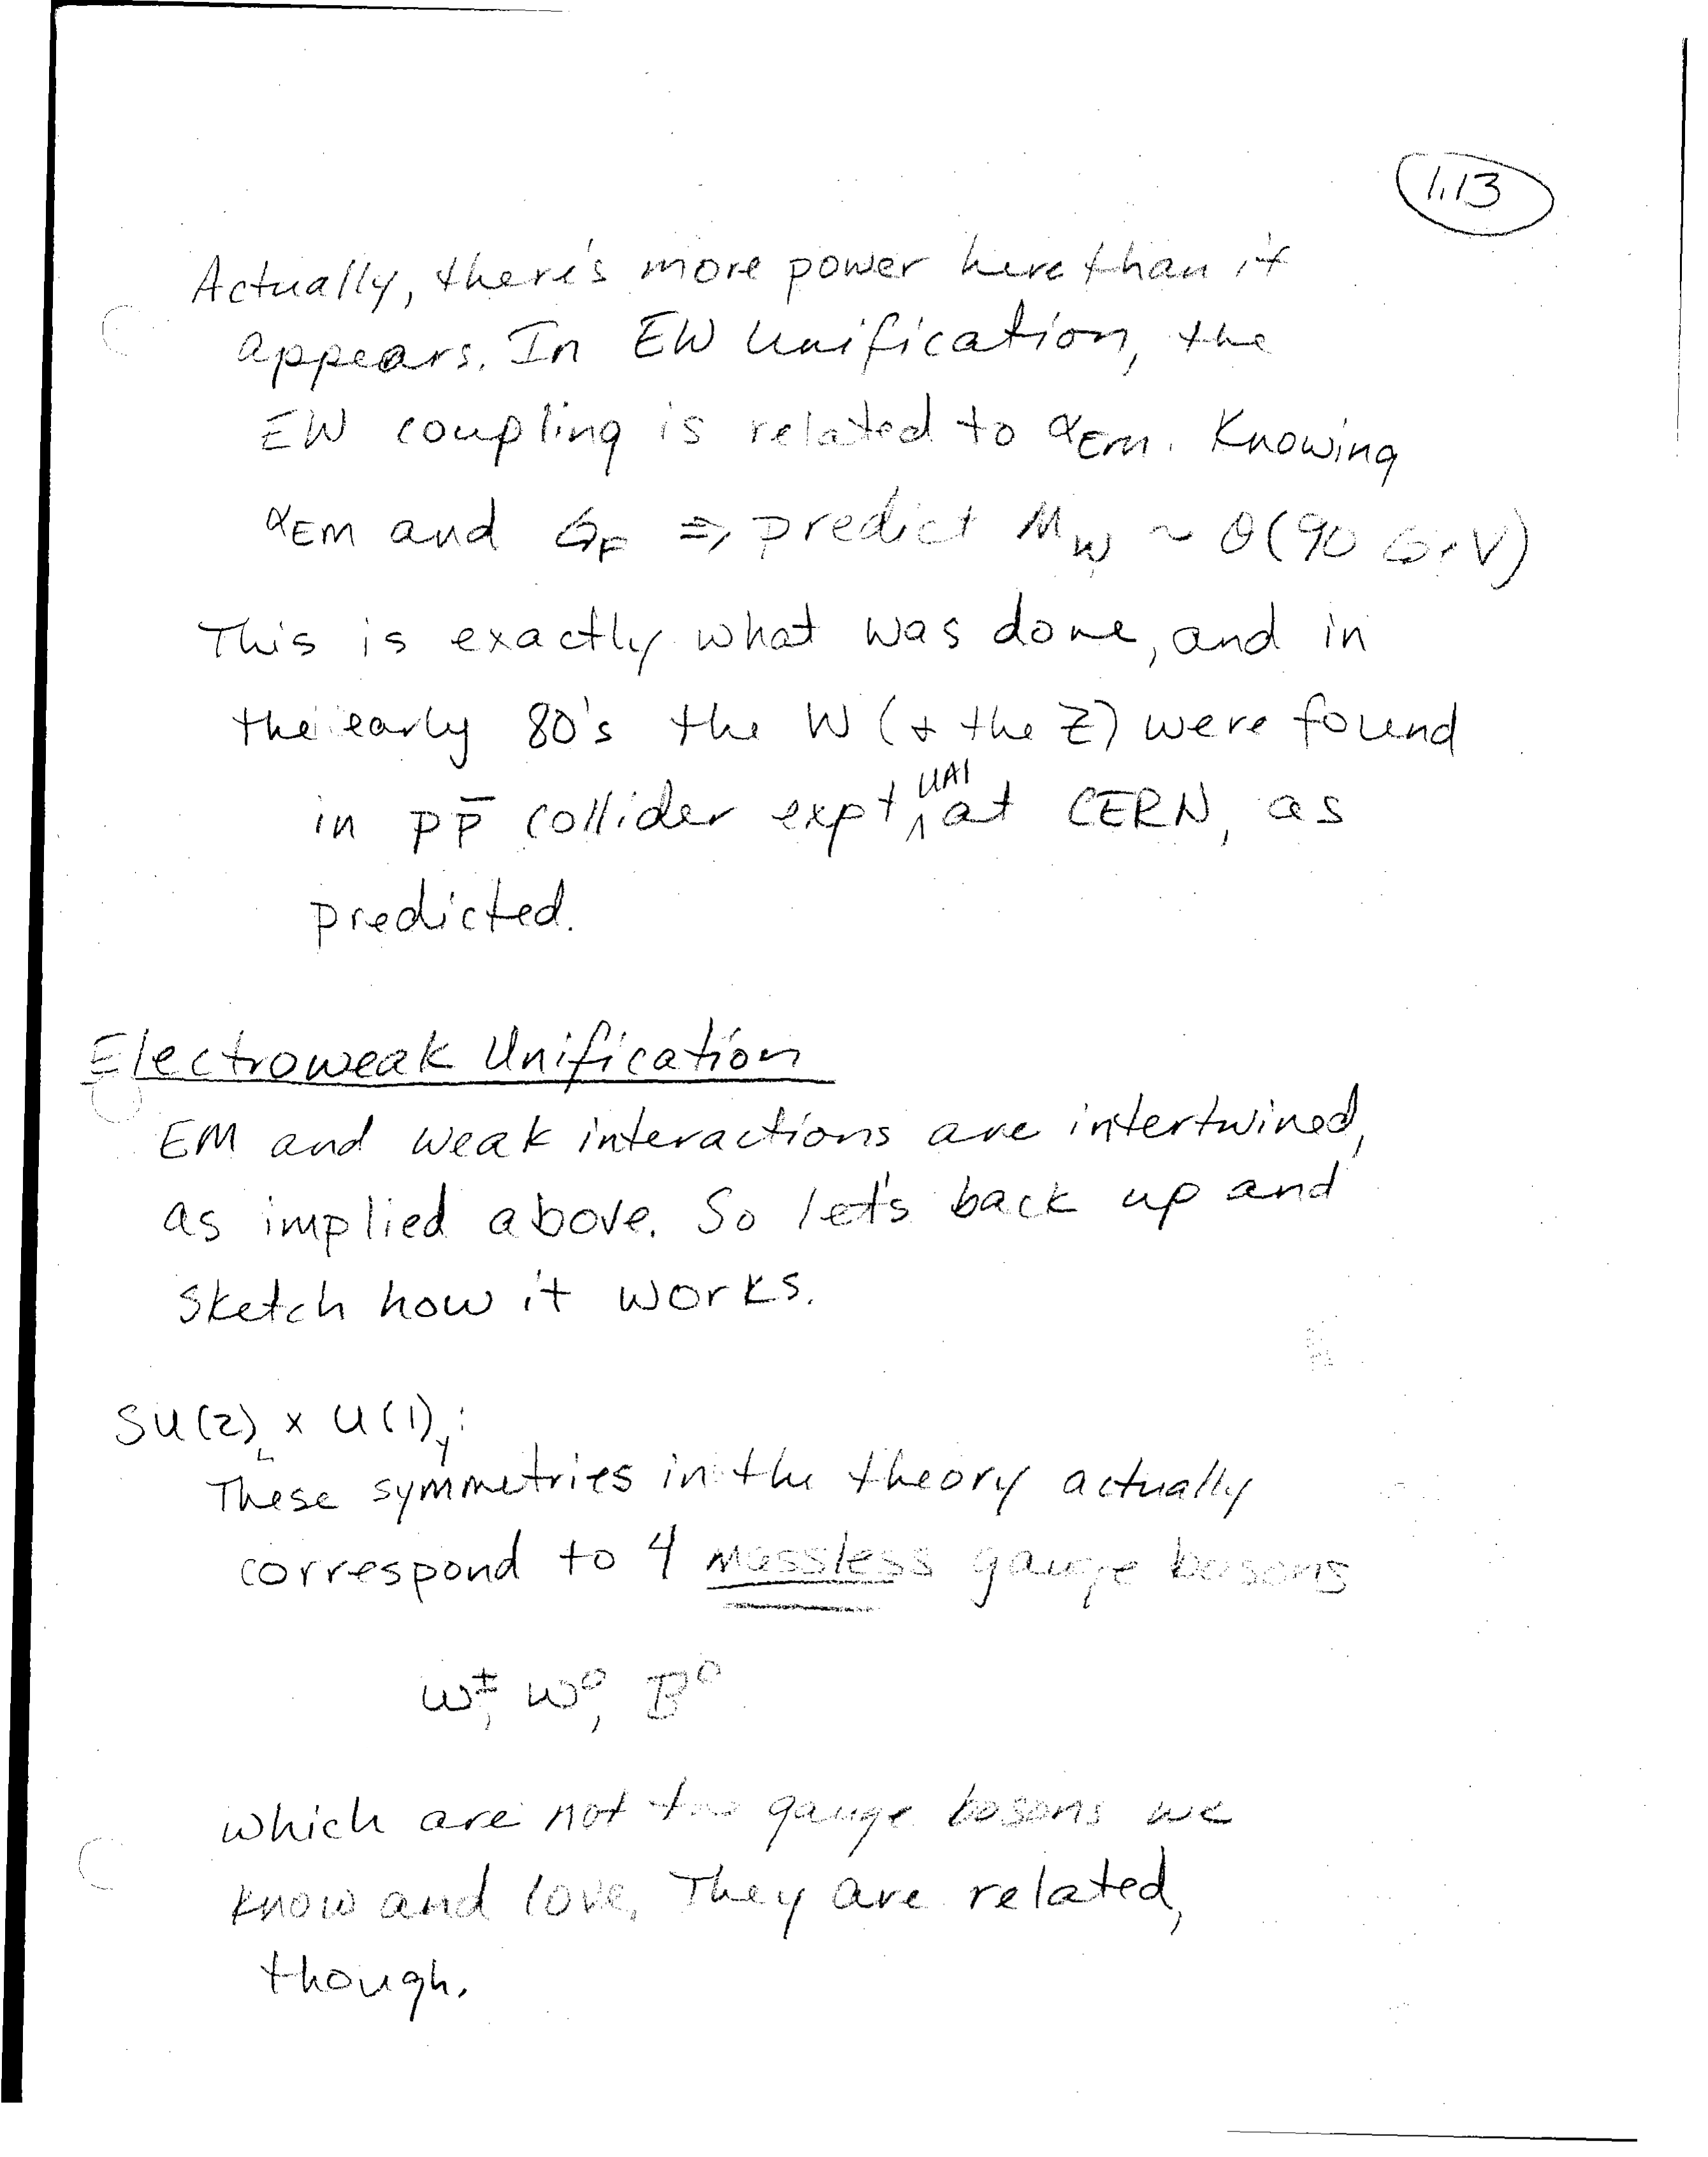 1.13
Actually, there's more power here than it
appears. In EW Unification, the
EW coupling is related to αEM. Knowing
αEM and GF ⇒ predict MW ~ O(90 GeV)
This is exactly what was done, and in
the early 80's the W (+ the Z) were found
in pp̅ collider expt ^UA1 at CERN, as
predicted.
Electroweak Unification
EM and weak interactions are intertwined,
as implied above. So let's back up and
sketch how it works.
SU(2)L × U(1)Y:
These symmetries in the theory actually
correspond to 4 massless gauge bosons
W±, W⁰, B⁰
which are not the gauge bosons we
know and love. They are related,
though.